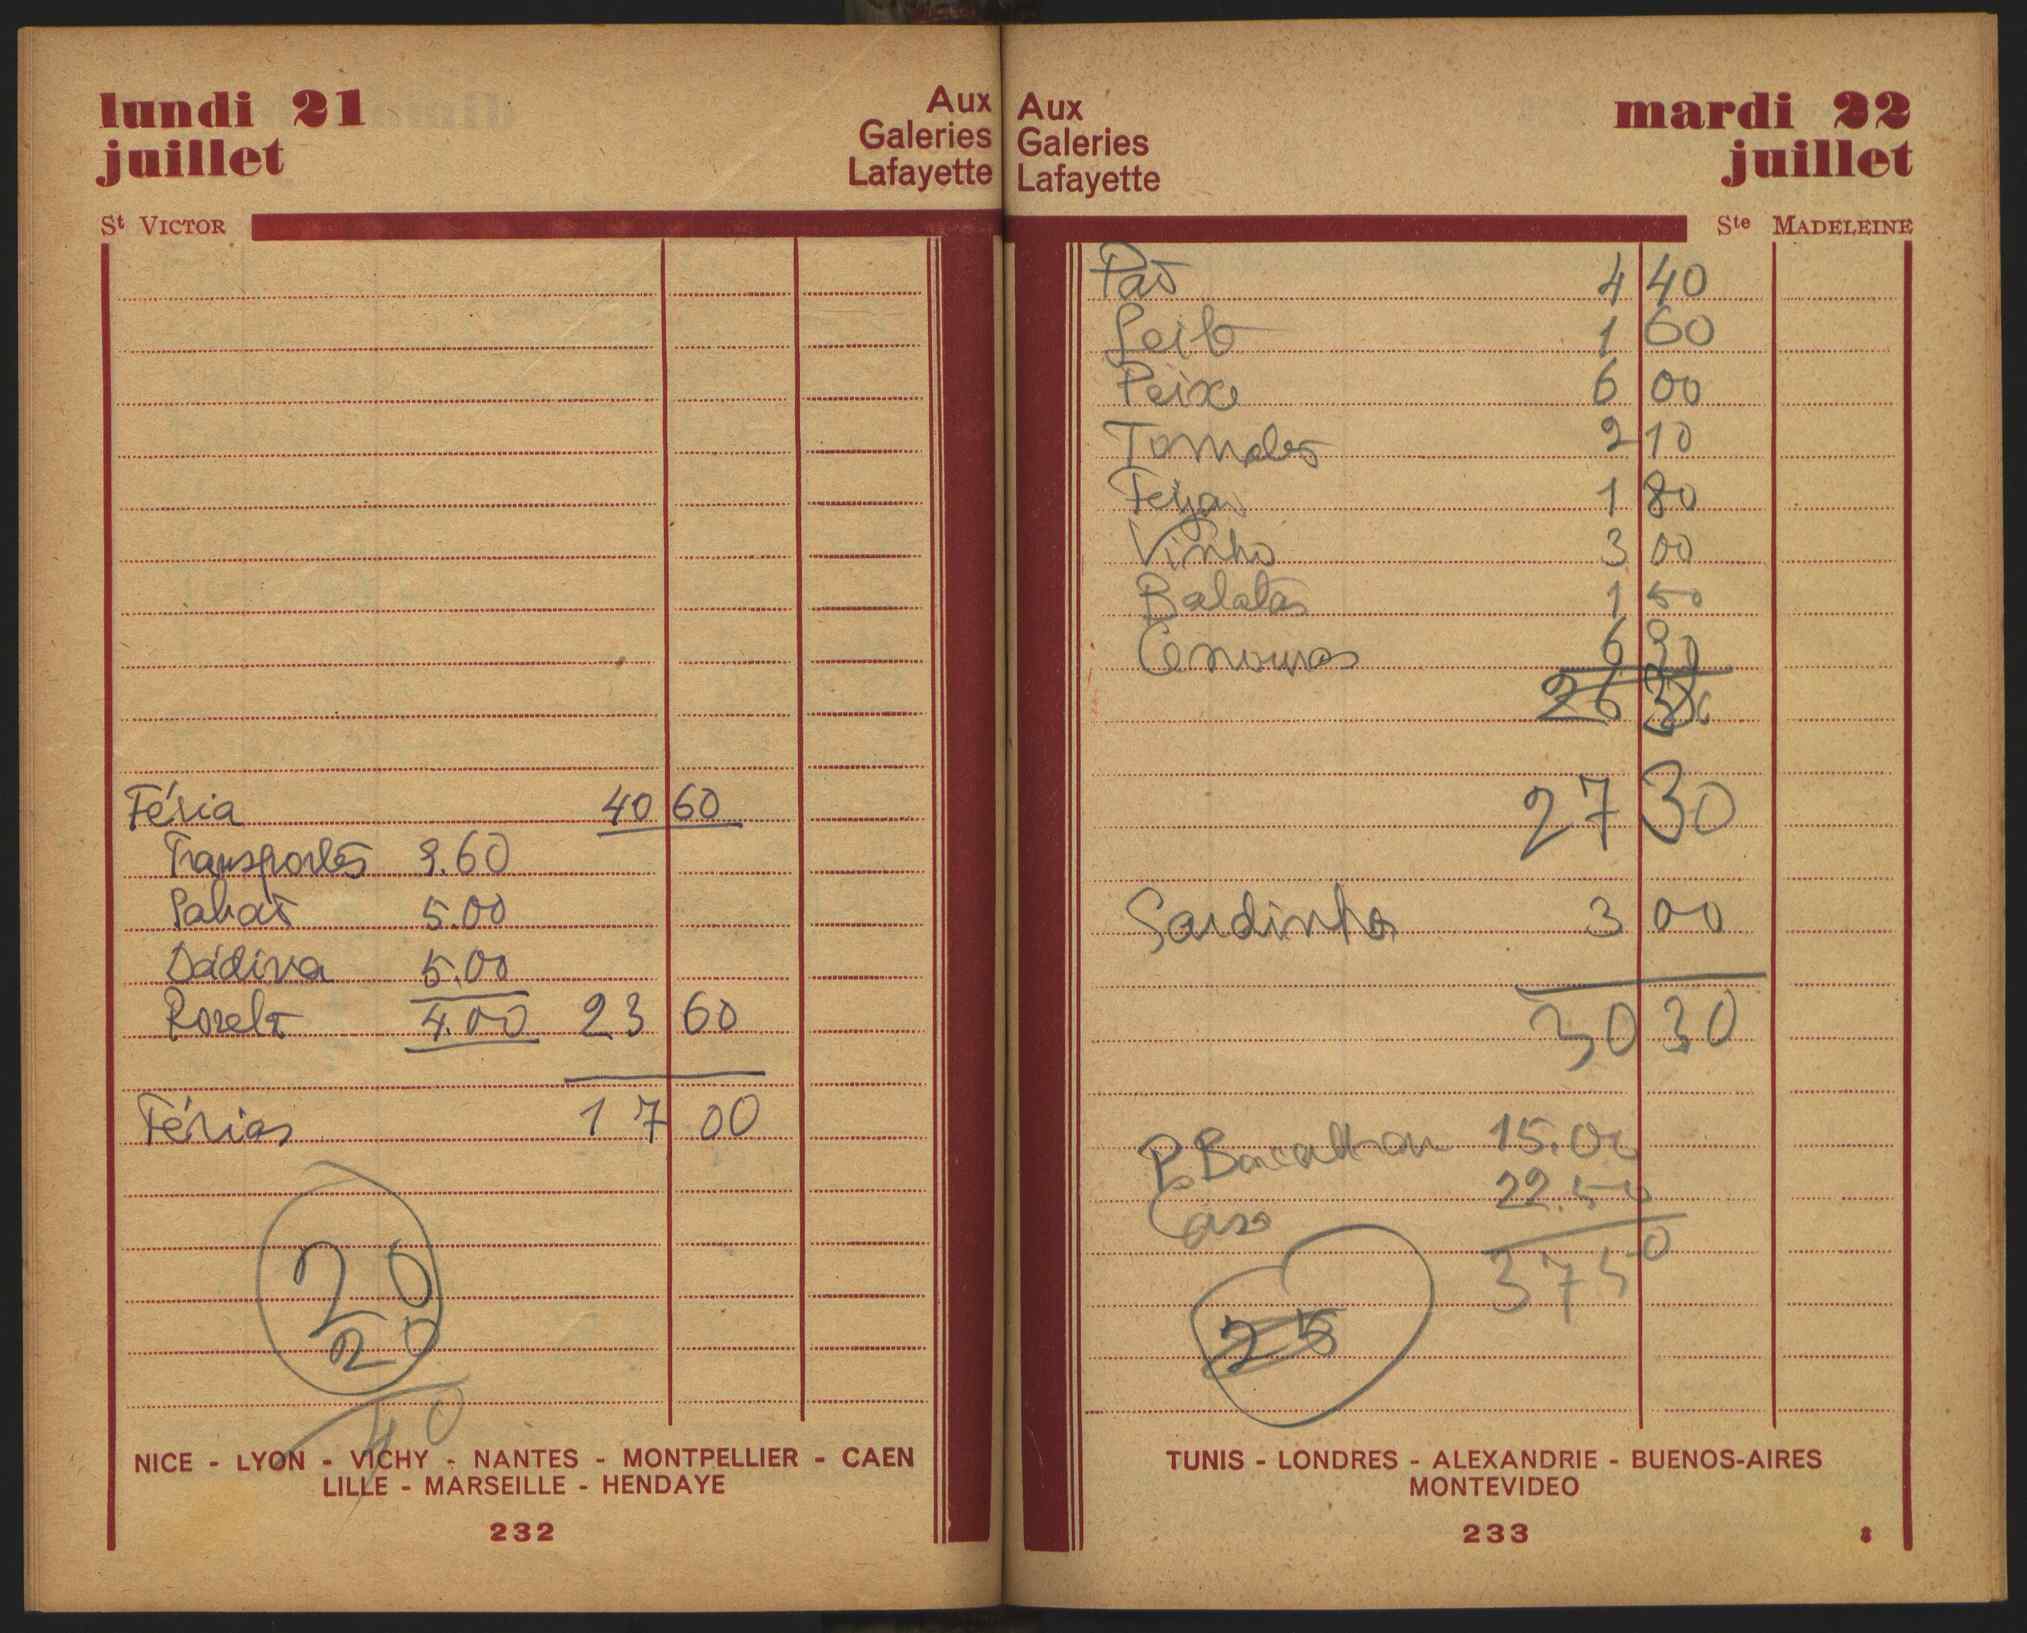 lundi 21
juillet
Aux
Galeries
Lafayette
St VICTOR
Féria 40 60
Transportes 9.60
Sabaõ 5.00
Dádiva 5.00
4.00 23 60
Férias 17 00
20
20
40
NICE - LYON - VICHY - NANTES - MONTPELLIER - CAEN
LILLE - MARSEILLE - HENDAYE
232
Aux
Galeries
Lafayette
mardi 22
juillet
Ste MADELEINE
Paõ 4 40
Leite 1 60
Peixe 6 00
Tomates 2 10
Feijaõ 1 80
Vinho 3 00
Batatas 1 50
Cenouras 6 90
26
27 30
Sardinha 3 00
30 30
Bacalhau 15.00
22.50
37 50
25
TUNIS - LONDRES - ALEXANDRIE - BUENOS-AIRES
MONTEVIDEO
233
8